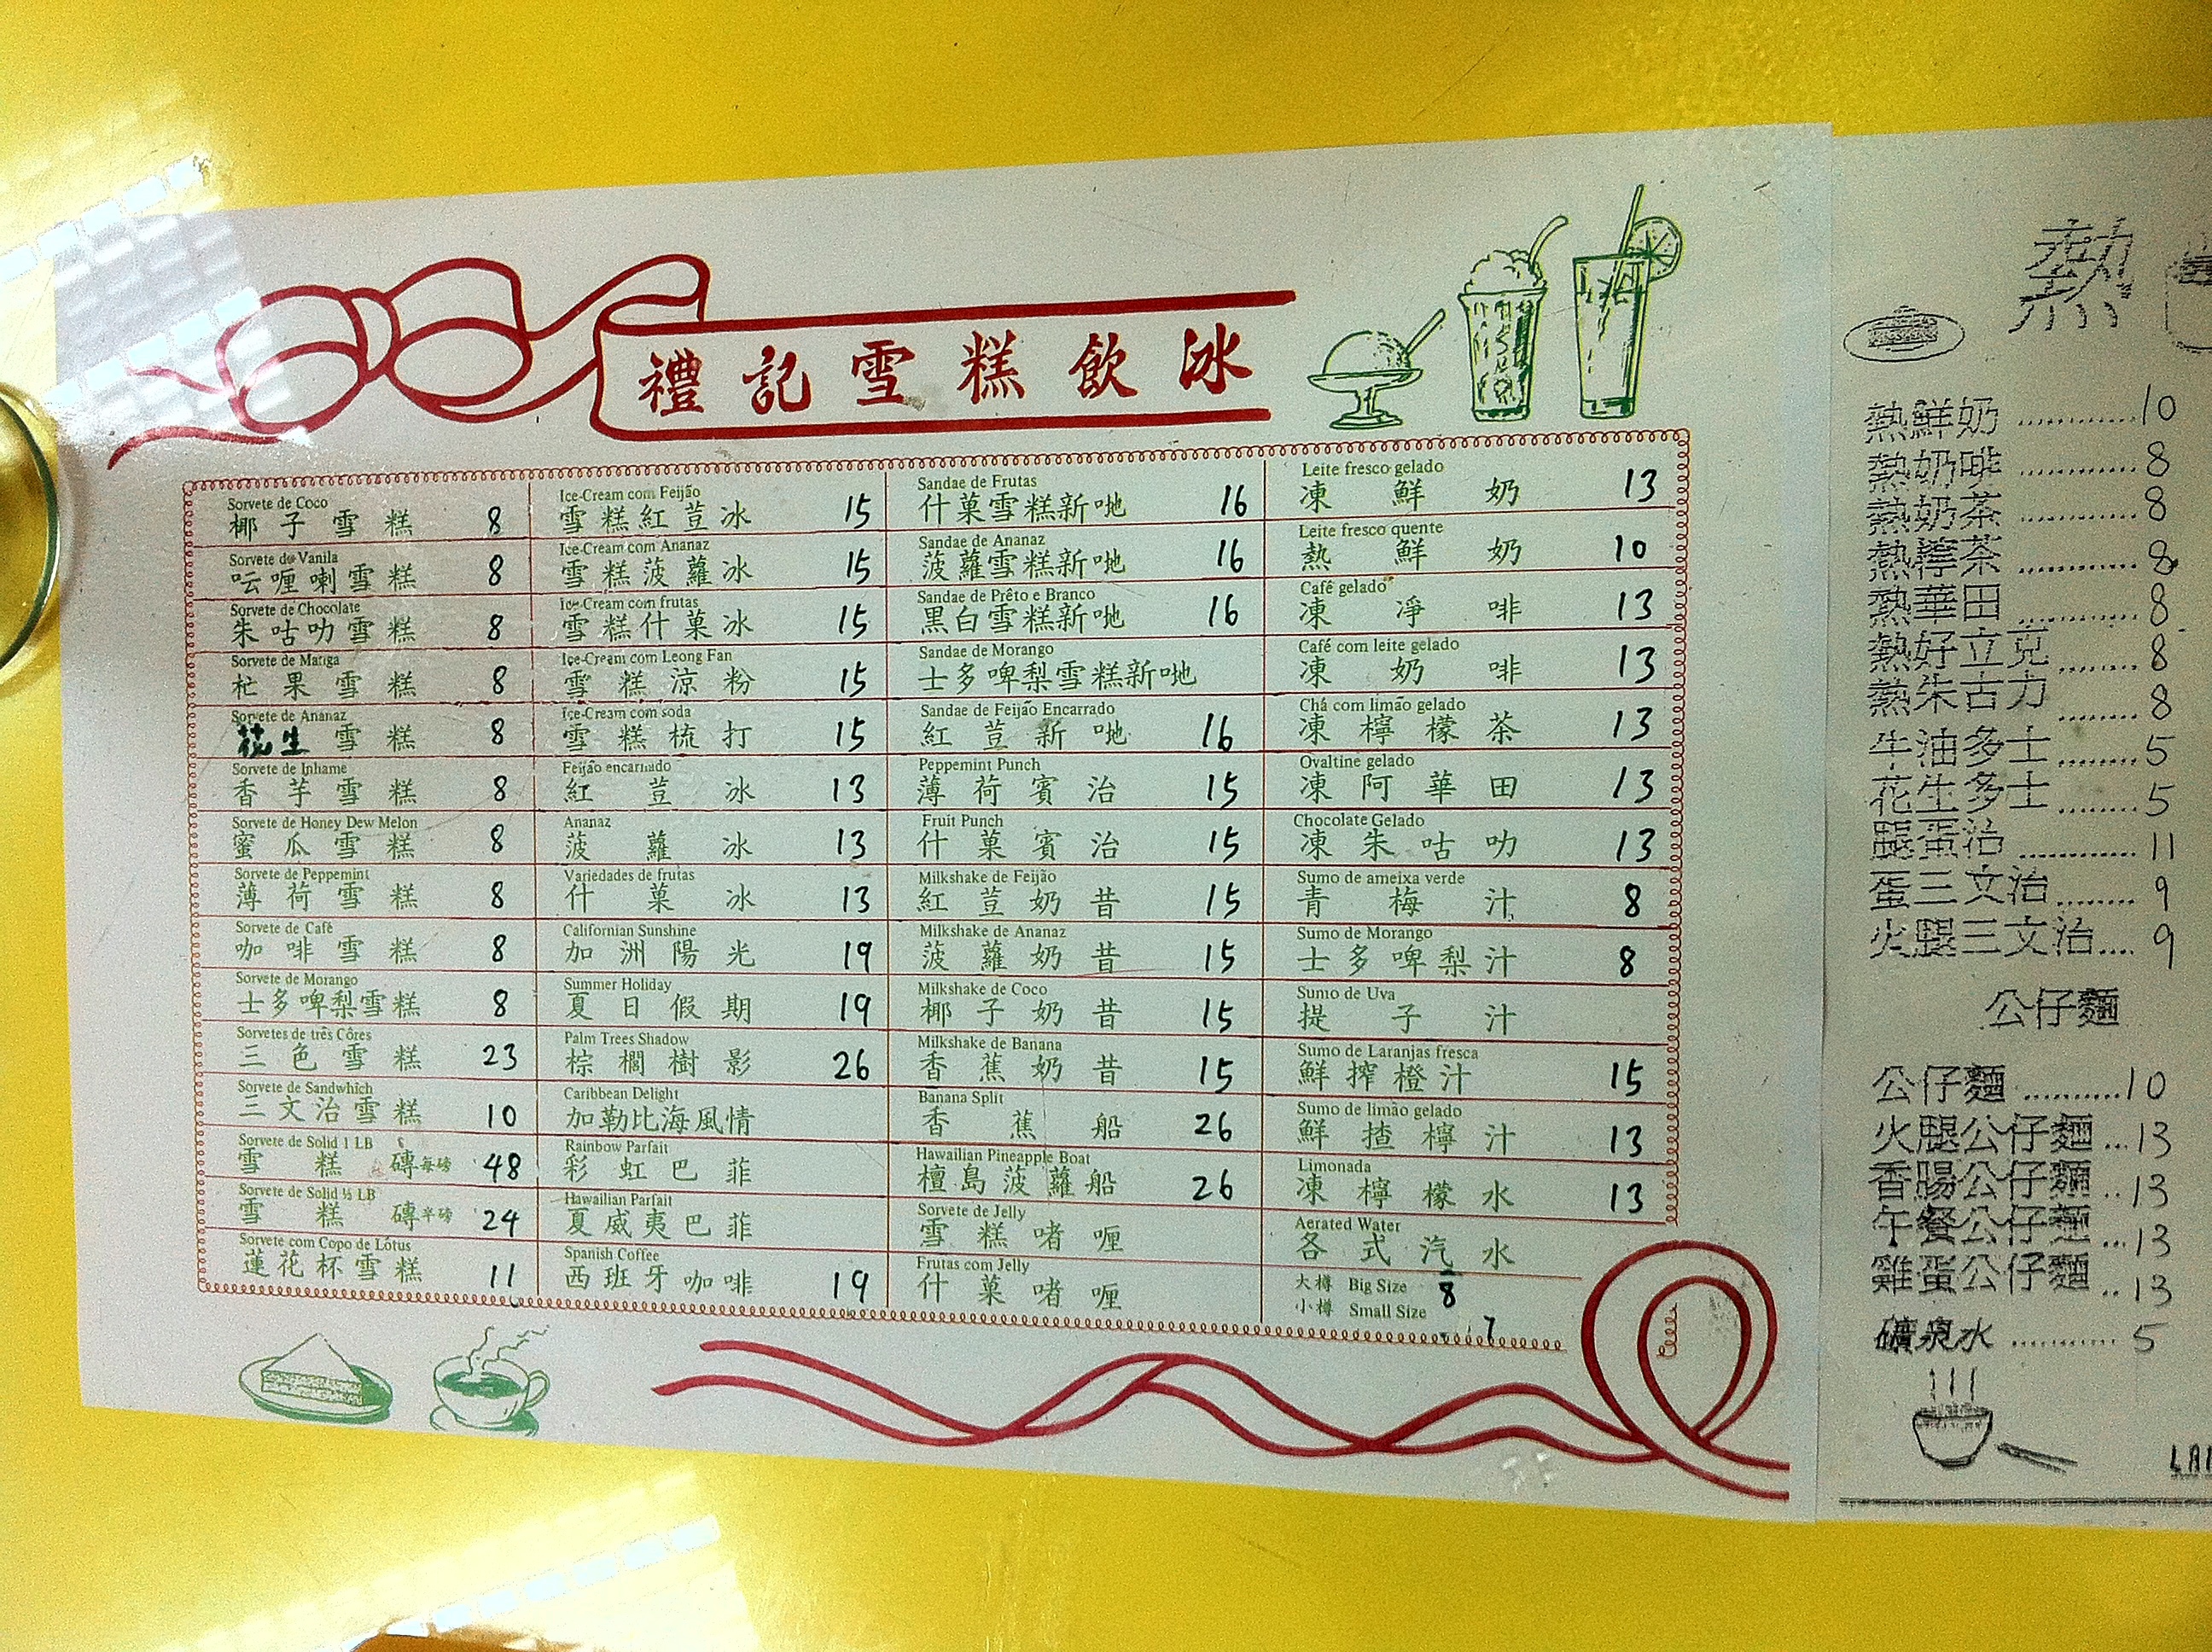 禮記雪糕飲冰
Sorvete de Coco
椰子雪糕 8
Sorvete de Vanila
呍喱喇雪糕 8
Sorvete de Chocolate
朱咕叻雪糕 8
Sorvete de Manga
杧果雪糕 8
Sorvete de Ananaz
花生雪糕 8
Sorvete de Inhame
香芋雪糕 8
Sorvete de Honey Dew Melon
蜜瓜雪糕 8
Sorvete de Peppemint
薄荷雪糕 8
Sorvete de Café
咖啡雪糕 8
Sorvete de Morango
士多啤梨雪糕 8
Sorvetes de três Côres
三色雪糕 23
Sorvete de Sandwhich
三文治雪糕 10
Sorvete de Solid 1 LB
雪糕磚每磅 48
Sorvete de Solid ½ LB
雪糕磚半磅 24
Sorvete com Copo de Lótus
蓮花杯雪糕 11
Ice-Cream com Feijão
雪糕紅荳冰 15
Ice-Cream com Ananaz
雪糕菠蘿冰 15
Ice-Cream com frutas
雪糕什菓冰 15
Ice-Cream com Leong Fan
雪糕涼粉 15
Ice-Cream com soda
雪糕梳打 15
Feijão encarnado
紅荳冰 13
Ananaz
菠蘿冰 13
Variedades de frutas
什菓冰 13
Californian Sunshine
加洲陽光 19
Summer Holiday
夏日假期 19
Palm Trees Shadow
棕櫚樹影 26
Caribbean Delight
加勒比海風情
Rainbow Parfait
彩虹巴菲
Hawailian Parfait
夏威夷巴菲
Spanish Coffee
西班牙咖啡 19
Sandae de Frutas
什菓雪糕新哋 16
Sandae de Ananaz
菠蘿雪糕新哋 16
Sandae de Prêto e Branco
黑白雪糕新哋 16
Sandae de Morango
士多啤梨雪糕新哋
Sandae de Feijão Encarrado
紅荳新哋 16
Peppemint Punch
薄荷賓治 15
Fruit Punch
什菓賓治 15
Milkshake de Feijão
紅荳奶昔 15
Milkshake de Ananaz
菠蘿奶昔 15
Milkshake de Coco
椰子奶昔 15
Milkshake de Banana
香蕉奶昔 15
Banana Split
香蕉船 26
Hawailian Pineapple Boat
檀島菠蘿船 26
Sorvete de Jelly
雪糕啫喱
Frutas com Jelly
什菓啫喱
Leite fresco gelado
凍鮮奶 13
Leite fresco quente
熱鮮奶 10
Café gelado
凍淨啡 13
Café com leite gelado
凍奶啡 13
Chá com limão gelado
凍檸檬茶 13
Ovaltine gelado
凍阿華田 13
Chocolate Gelado
凍朱咕叻 13
Sumo de ameixa verde
青梅汁 8
Sumo de Morango
士多啤梨汁 8
Sumo de Uva
提子汁
Sumo de Laranjas fresca
鮮搾橙汁 15
Sumo de limão gelado
鮮揸檸汁 13
Limonada
凍檸檬水 13
Aerated Water
各式汽水
大樽 Big Size 8
小樽 Small Size 7
熱
熱鮮奶 ..........10
熱奶啡 ..........8
熱奶茶 ..........8
熱檸茶 ..........8
熱華田 ..........8
熱好立克 .......8
熱朱古力 .......8
牛油多士 .......5
花生多士 .......5
腿蛋治 ..........11
蛋三文治 .......9
火腿三文治....9
公仔麵
公仔麵 ..........10
火腿公仔麵 ...13
香腸公仔麵 ..13
午餐公仔麵 ...13
雞蛋公仔麵 ..13
礦泉水 ..........5